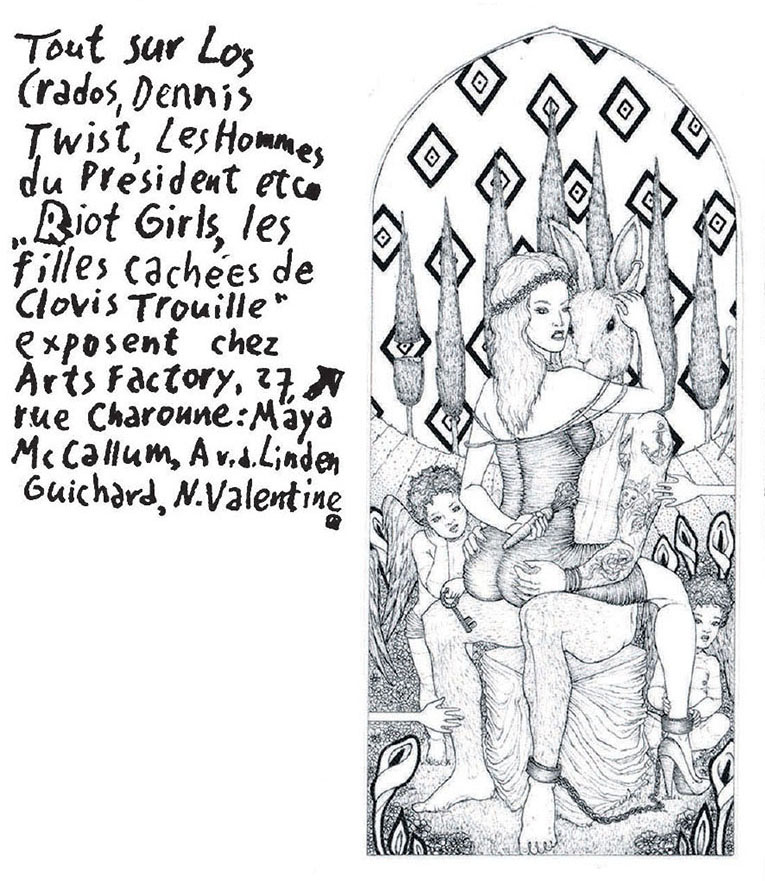 Tout sur Los
Crados, Dennis
Twist, Les Hommes
du Président etc.
„Riot Girls, les
filles cachées de
Clovis Trouille"
exposent chez
Arts Factory, 27,
rue Charonne: Maya
McCallum, A v.d. Linden
Guichard, N. Valentine.